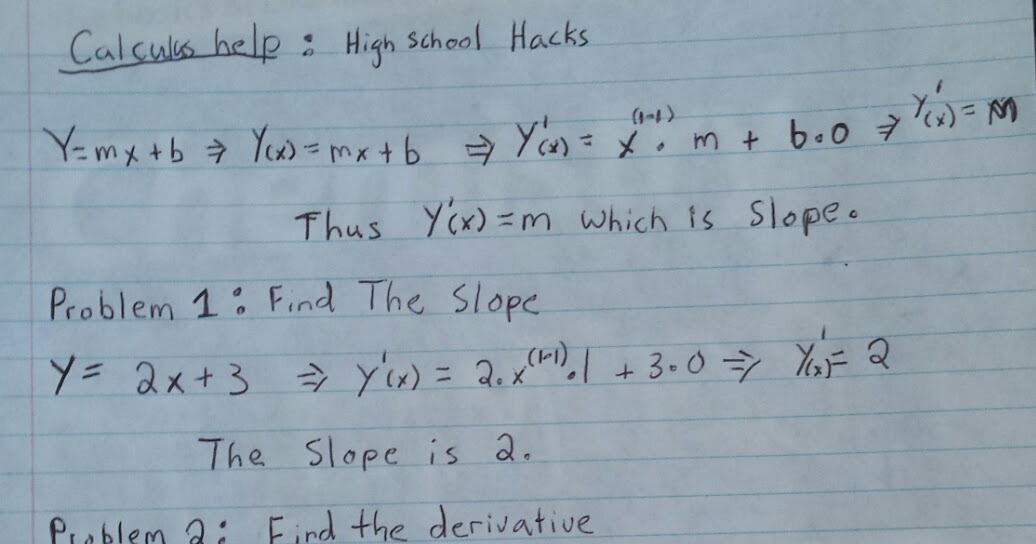 Calculus help : High school Hacks
Y=mx+b ⇒ Y(x)=mx+b ⇒ Y'(x) = x^(1-1) · m + b·0 ⇒ Y'(x) = m
Thus Y'(x)=m which is slope.
Problem 1 : Find The Slope
Y= 2x+3 ⇒ Y'(x) = 2·x^(1-1)·1 + 3·0 ⇒ Y'(x)= 2
The Slope is 2.
Problem 2: Find the derivative